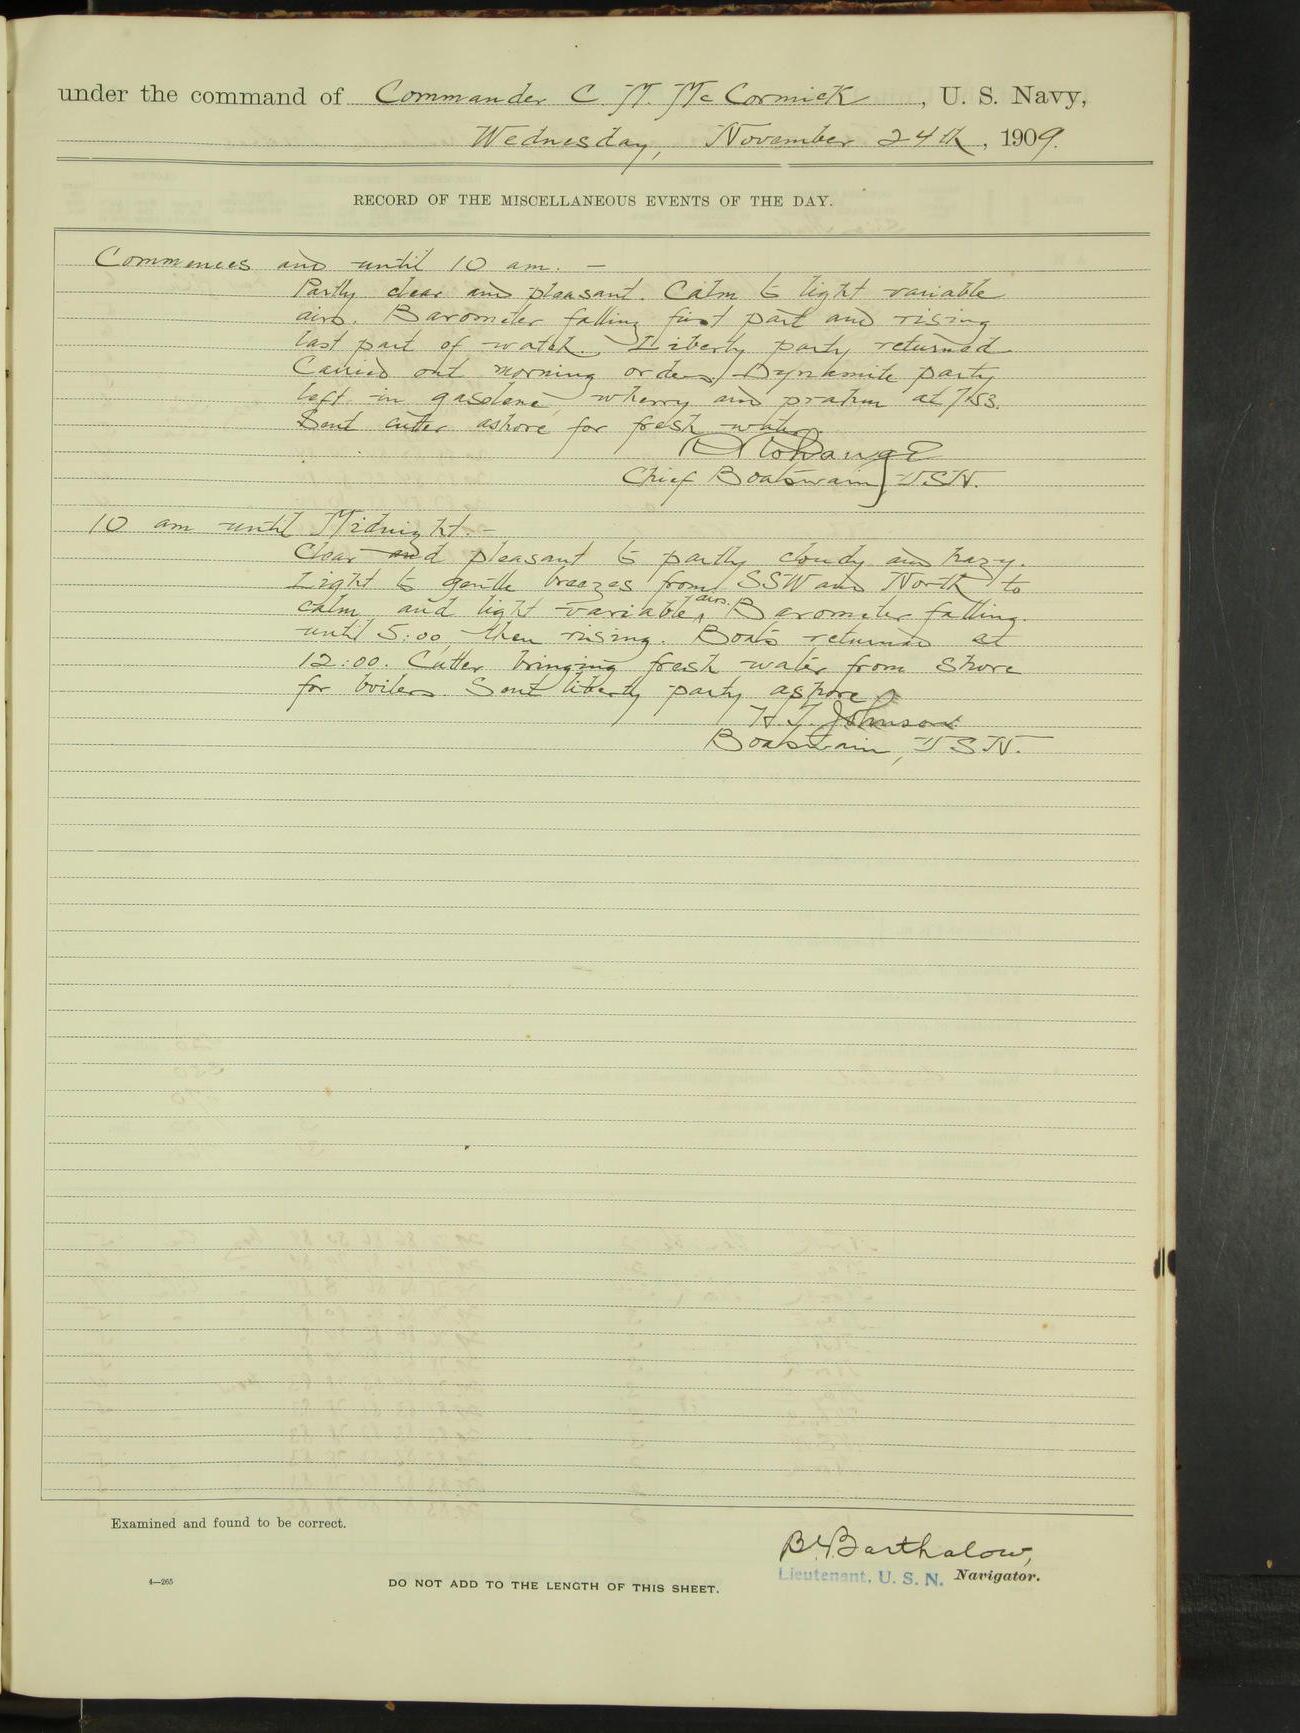 under the command of Commander C. M. McCormick, U. S. Navy,
Wednesday, November 24th, 1909.
RECORD OF THE MISCELLANEOUS EVENTS OF THE DAY.
Commences and until 10 am. —
Partly clear and pleasant. Calm to light variable
airs. Barometer falling first part and rising
last part of watch. Liberty party returned
Carried out morning orders. Dynamite party
left in gasolene, wherry and praham at
Sent cutter ashore for fresh water.
Chief Boatswain, USN.
10 am until Midnight. —
Clear and pleasant to partly cloudy and hazy.
Light to gentle breezes from SSW and North to
calm and light variable airs. Barometer falling.
until 5:00, then rising. Boats returned at
12:00. Cutter bringing fresh water from shore
for boilers. Sent liberty party ashore.
H. T. Johnson
Boatswain, USN.
Examined and found to be correct.
Barthalow,
Lieutenant, U. S. N. Navigator.
4—265
DO NOT ADD TO THE LENGTH OF THIS SHEET.